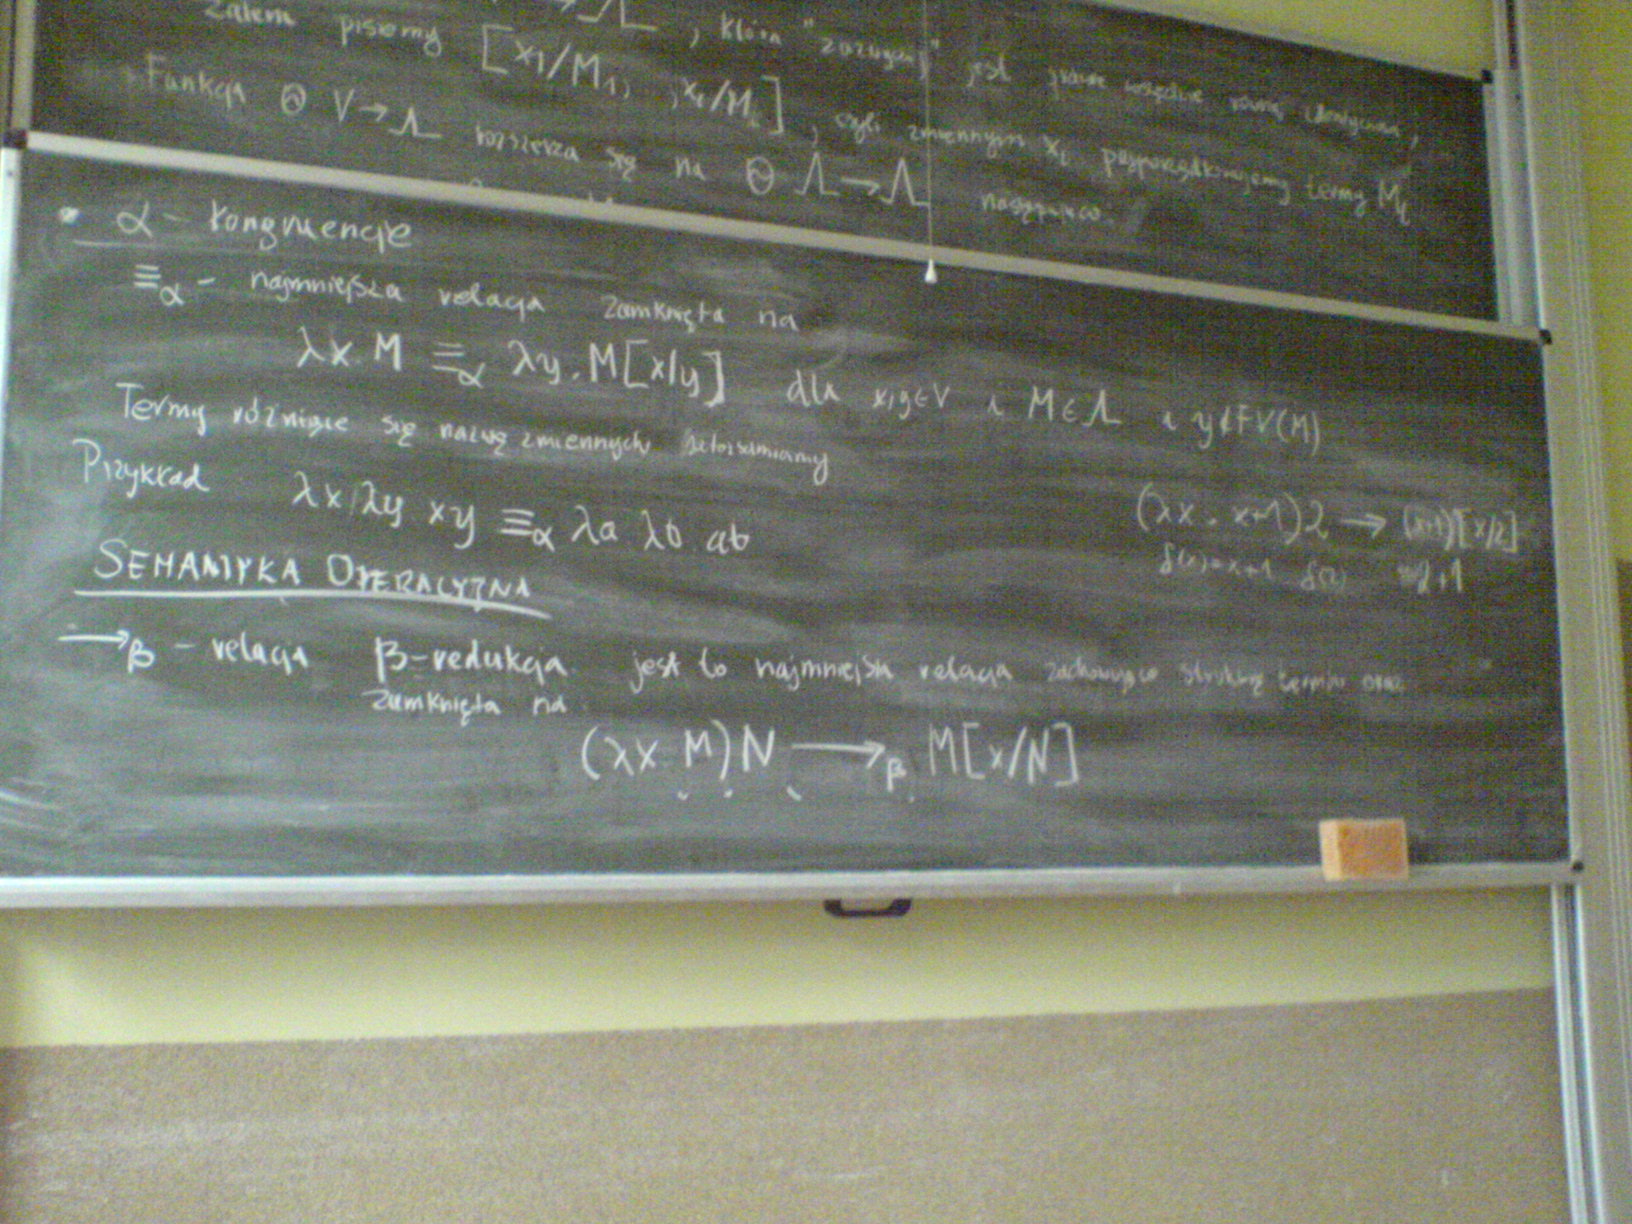 Zatem piszemy [x₁/M₁, , xₖ/Mₖ] , która jest prawie wszędzie równa identyczności,
, czyli zmiennym xᵢ przyporządkowujemy termy Mᵢ
Funkcja Θ V → Λ rozszerza się na Θ Λ → Λ następująco:
• α - kongruencje
≡α - najmniejsza relacja zamknięta na
λx M ≡α λy. M[x/y] dla x,y∈V i M∈Λ i y∉FV(M)
Termy różniące się nazwą zmiennych utożsamiamy
Przykład λx λy xy ≡α λa λb ab
(λx . x+1)2 → (x+1)[x/2]
f(x)=x+1 f(2) 2+1
SEMANTYKA OPERACYJNA
→β - relacja β-redukcja jest to najmniejsza relacja zachowująca strukturę termów oraz
zamknięta na
(λx M)N →β M[x/N]